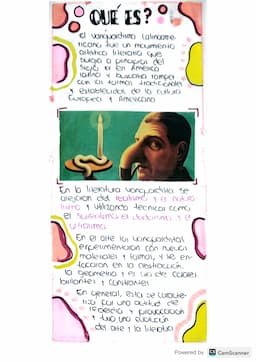 QUÉ ES?
El vanguardismo latinoame-
ricano fue un movimiento
artístico literario que
surgio a principios del
siglo XX en América
latina y buscaba romper
con las formas tradicionales
y establecidas de la cultura
Europea y Americana
En la literatura vanguardista se
alejaron del realismo y el natura
lismo y utilizando tecnicas como
el surrealismo el dadaismo y el
ultraismo
En el arte los vanguardistas
experimentaron con nuevos
materiales y formas, y se en-
focaron en la abstracción
la geometria y el uso de colores
brillantes y
En general, esta se caracte-
rizó por una actitud de
rebeldía y provocación
y tuvo una
del arte y la literatura
Powered by CS CamScanner